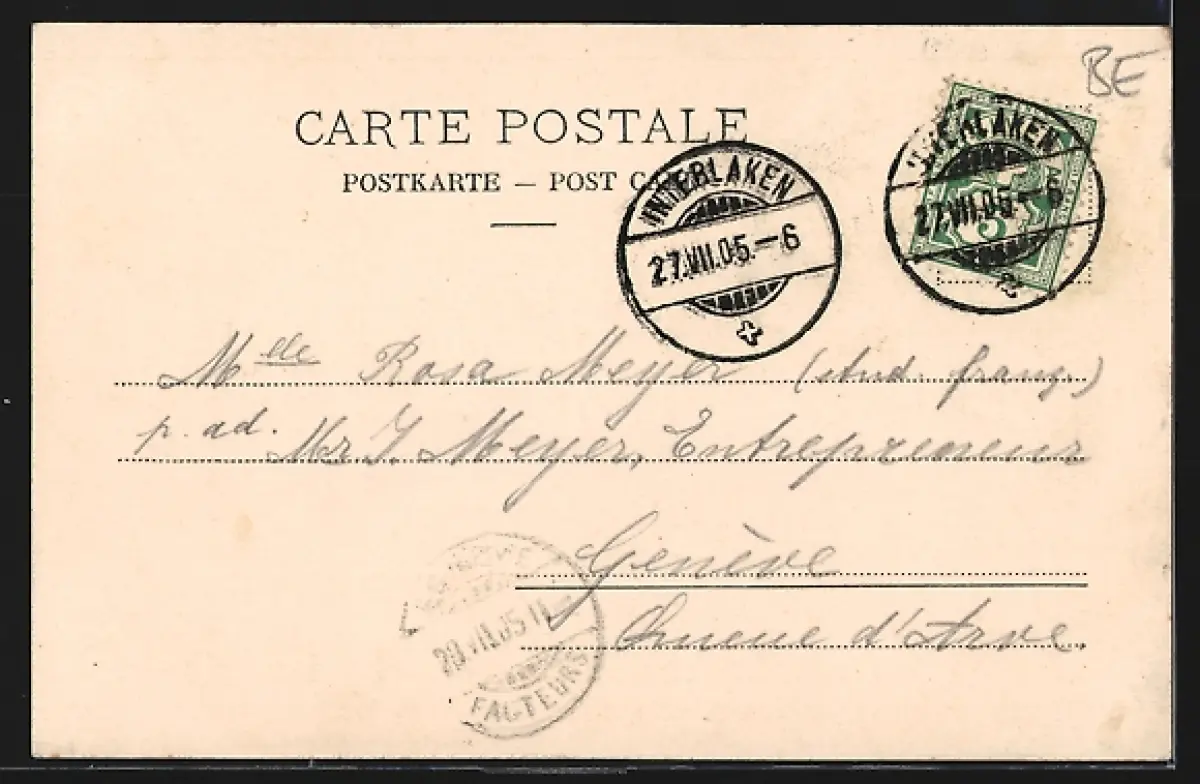 BE
CARTE POSTALE
POSTKARTE — POST C
INTERLAKEN
27.VII.05.–6
INTERLAKEN
27.VII.05.–6
5
Mlle Rosa Meyer (stud. franç.)
p. ad. Mr. J. Meyer, Entrepreneur
Genève
d'Arve.
VII.05
FACTEURS